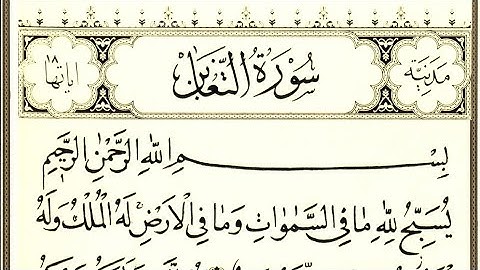 مدنية
سورة التغابن
اياتها ١٨
بِسْمِ اللّٰهِ الرَّحْمٰنِ الرَّحٖيمِ
يُسَبِّحُ لِلّٰهِ مَا فِى السَّمٰوَاتِ وَمَا فِى الْاَرْضِۚ لَهُ الْمُلْكُ وَلَهُ